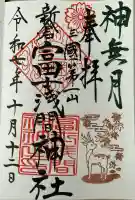 神無月
奉拝
三国第一山
新倉富士浅間神社
令和年十月十二日